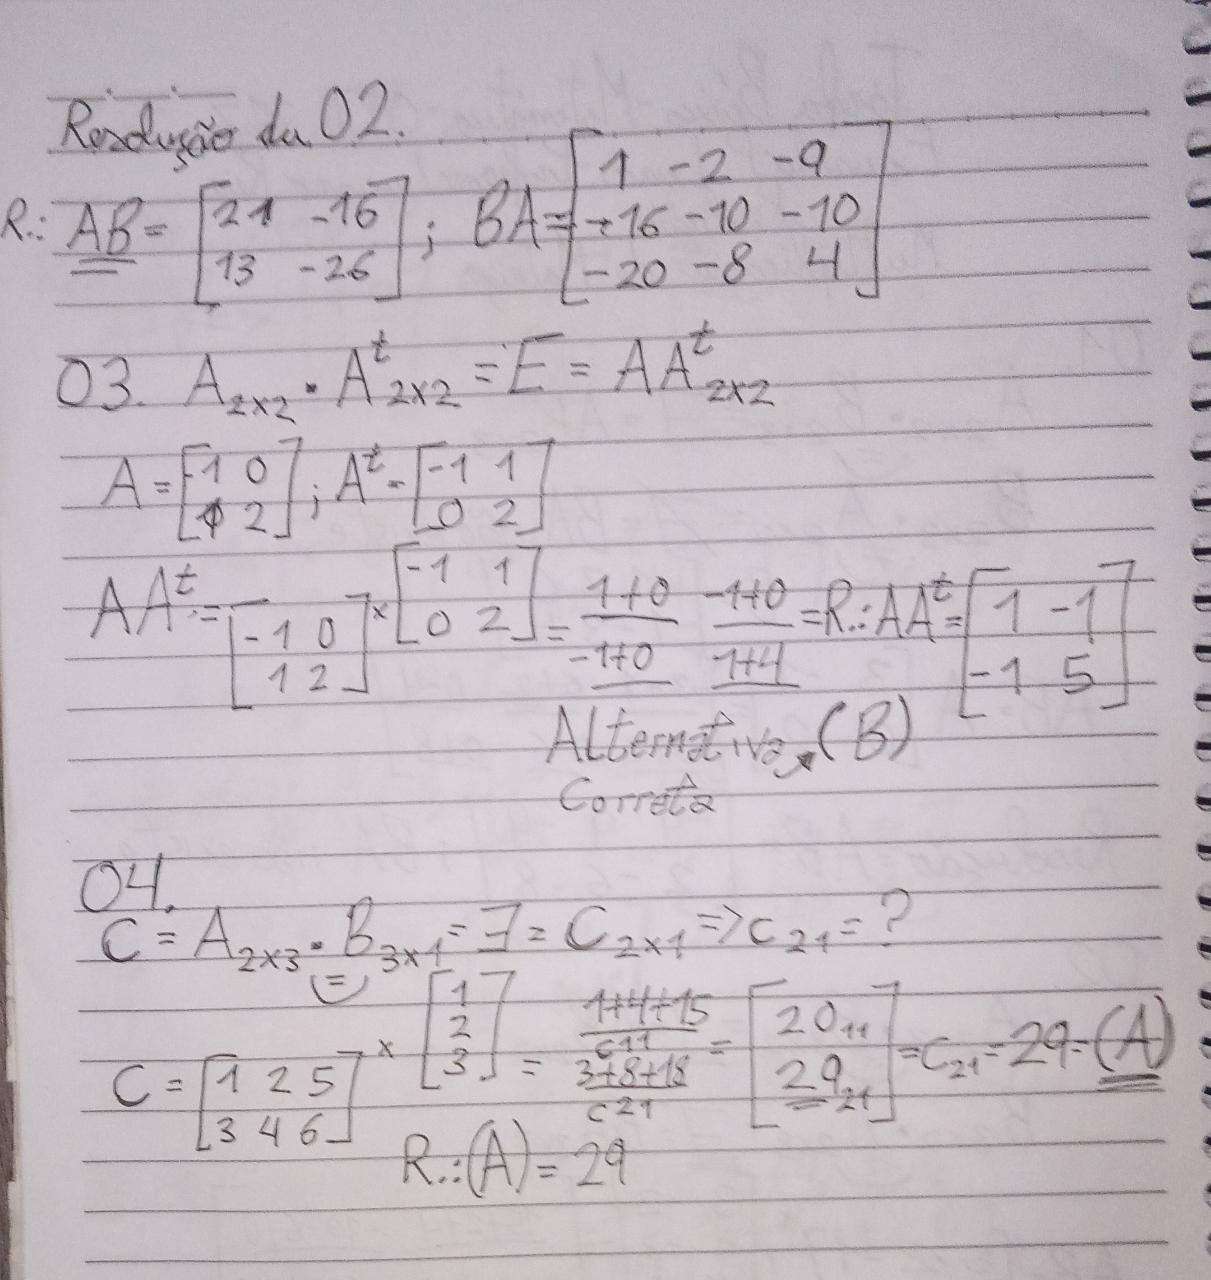 Resolução da 02.
R.: AB = [21 -16; 13 -26]; BA = [1 -2 -9; -16 -10 -10; -20 -8 4]
03. A2x2 · A^t 2x2 = E = AA^t 2x2
A = [-1 0; 1 2]; A^t = [-1 1; 0 2]
AA^t = [-1 0; 1 2] x [-1 1; 0 2] = 1+0 -1+0 -1+0 1+4 = R.: AA^t = [1 -1; -1 5]
Alternativa (B)
Correta
04.
C = A2x3 · B3x1 = ∃ = C2x1 => c21 = ?
=
C = [1 2 5; 3 4 6] x [1; 2; 3] = 1+4+15 c11 3+8+18 c21 = [20 11; 29 21] = c21 = 29 = (A)
R.: (A) = 29